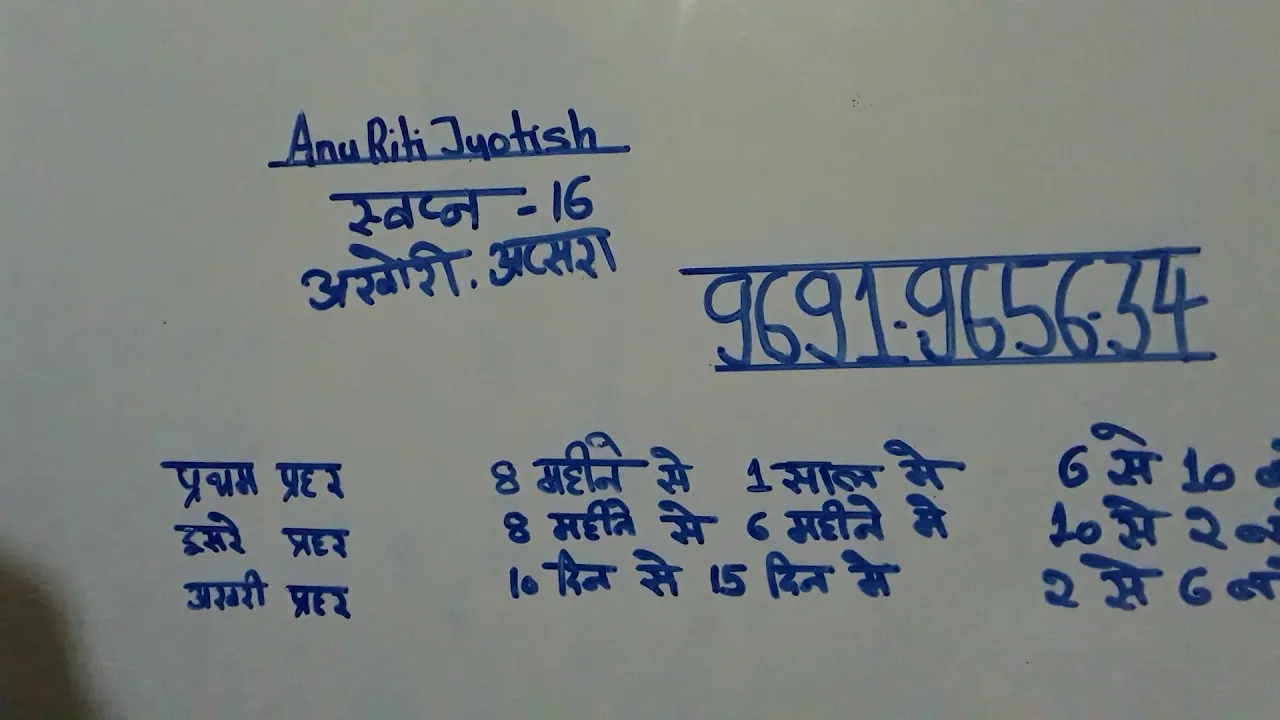 AnuRiti Jyotish
स्वप्न - 16
अखोरी. अप्सरा
9691.9656.34
प्रथम प्रहर 8 महीने से 1 साल मे 6 से 10
दुसरे प्रहर 8 महीने से 6 महीने मे 10 से 2
अखरी प्रहर 10 दिन से 15 दिन मे 2 से 6